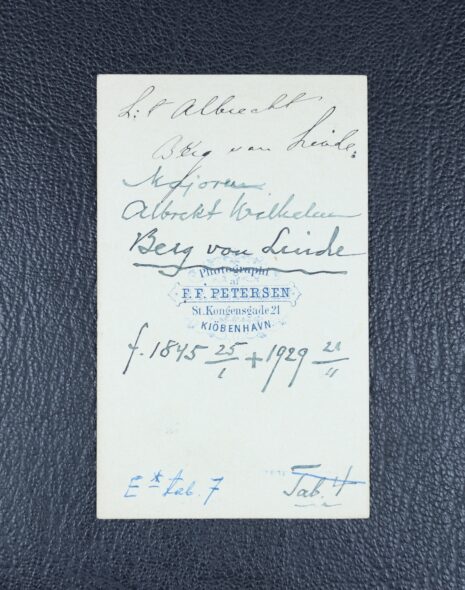 L:t Albrecht
Berg von Linde.
Majoren
Albrekt Wilhelm
Berg von Linde
Photographi
af
F. F. PETERSEN
St. Kongensgade 21
KIÖBENHAVN
f. 1845 25/1 + 1929 21/11
E* tab. 7 Tab. 4